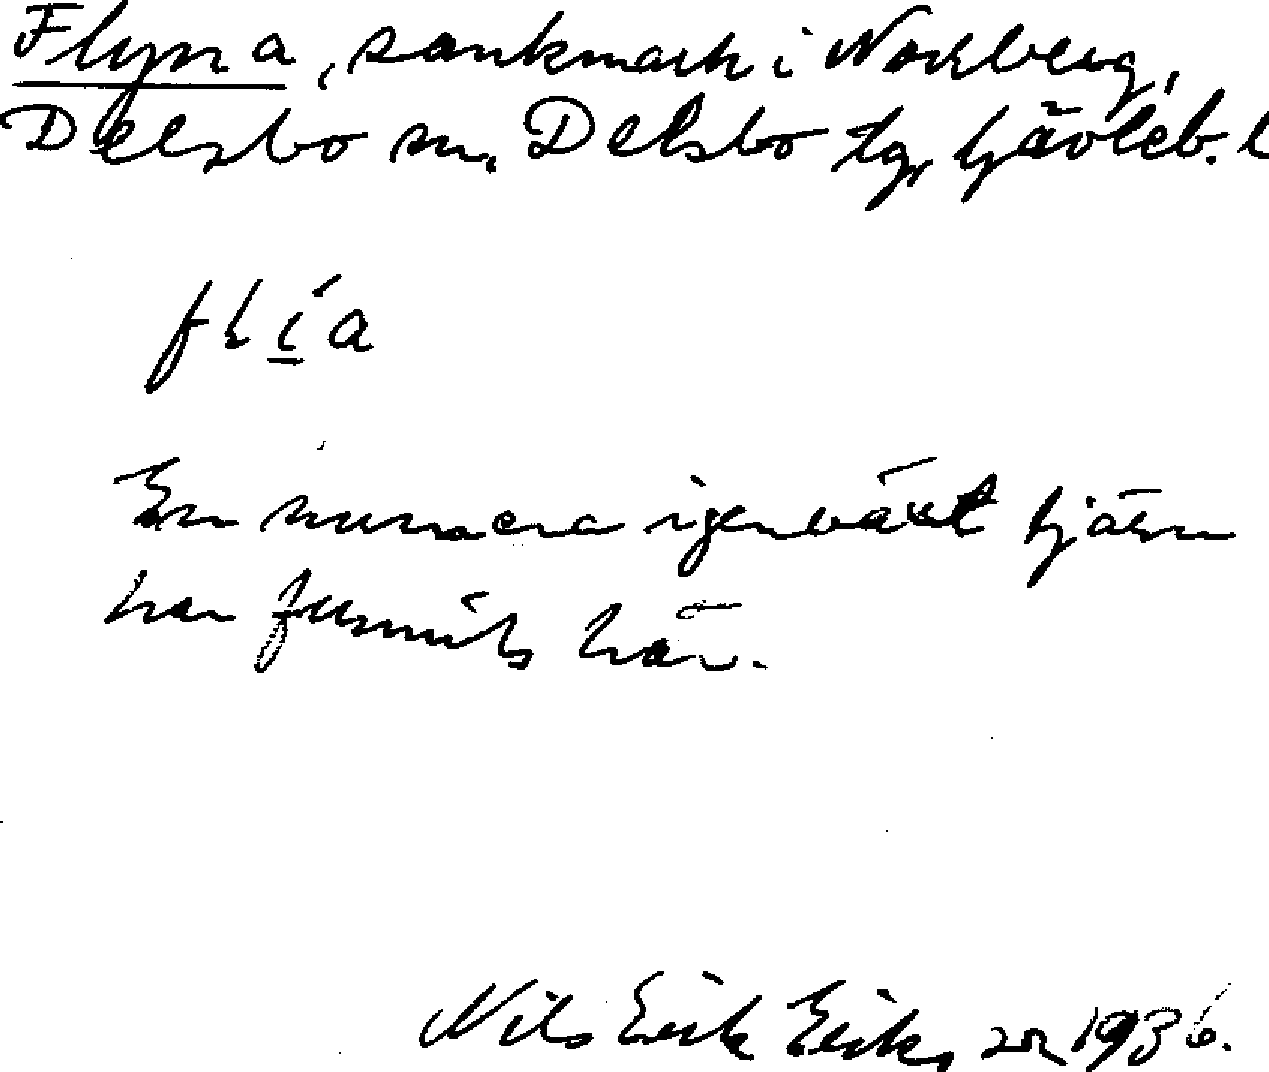 Flyna, sankmark i Norrberg,
Delsbo sn, Delsbo tg, Gävleb. l
flía
En numera igenväxt tjärn
har funnits här.
Nils Erik Eriks 1936.